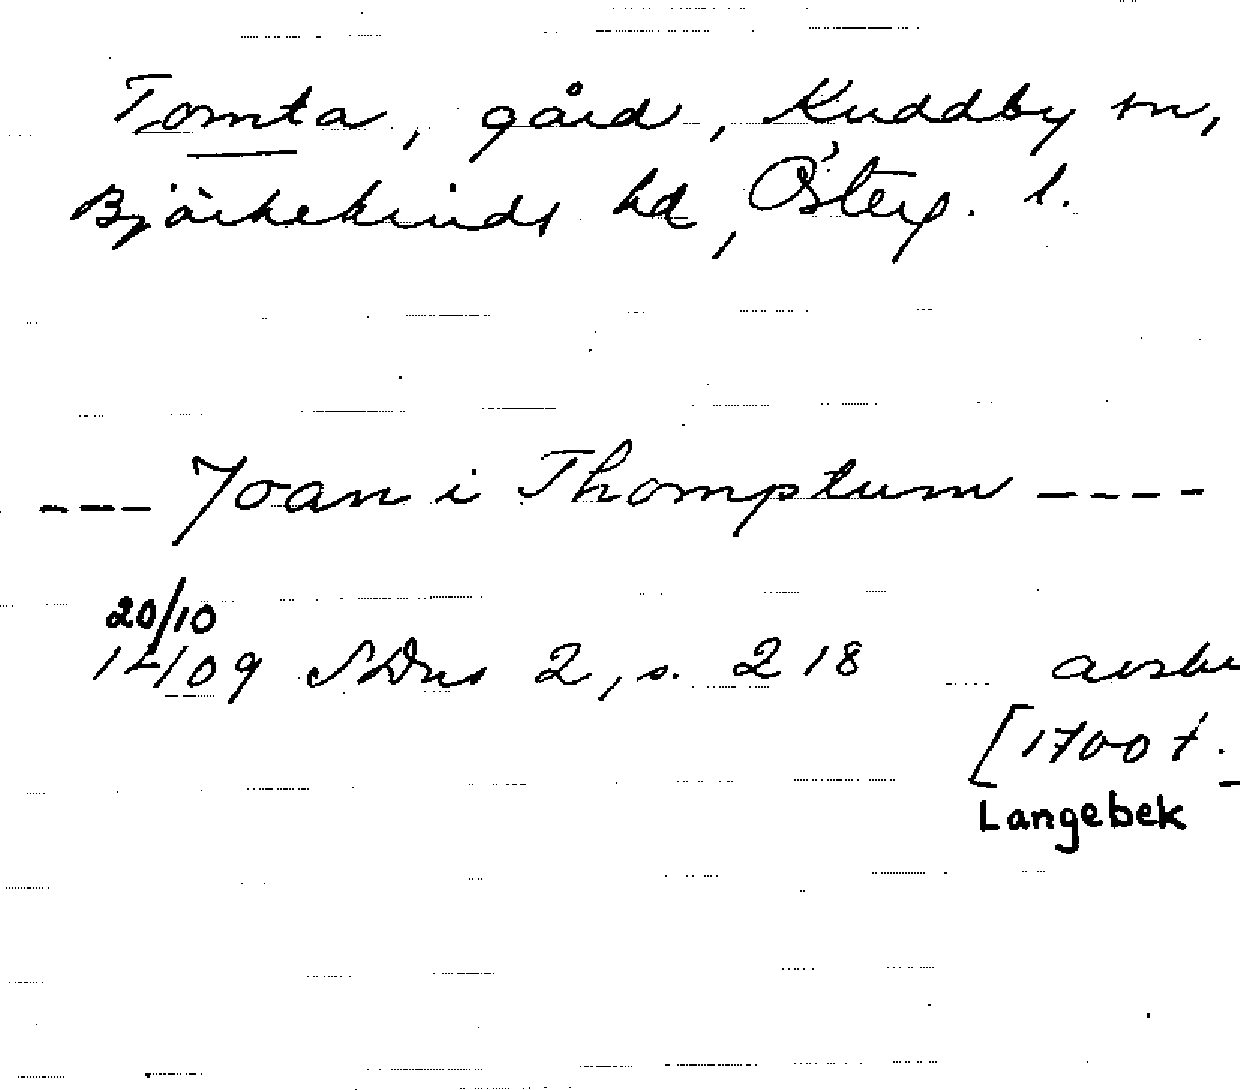 Tomta, gård, Kuddby sn,
Björkekinds hd, Österg. l.
--- Joan i Thomptum ----
20/10
1409 SDns 2, s. 218 avskr
[1700 t.
Langebek